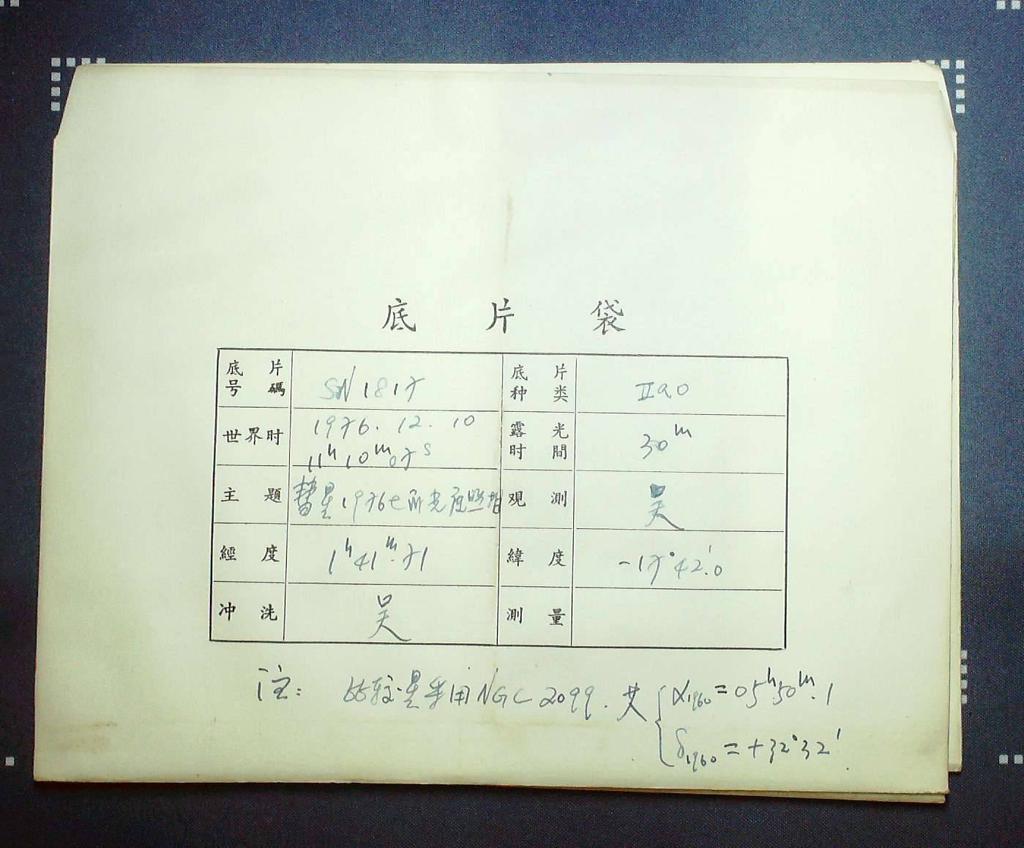 底片袋
底片号碼 SN 1817 底片种类 IIaO
世界时 1976. 12. 10 露光时間 30ᵐ
11ʰ 10ᵐ 07ˢ
主題 彗星1976 观測 吴
經度 1ʰ41ᵐ.71 緯度 -17°42'.0
冲洗 吴 測量
注: 比较星采用NGC 2099. 其 { α₁₉₆₀ = 05ʰ50ᵐ.1
δ₁₉₆₀ = +32°32'.